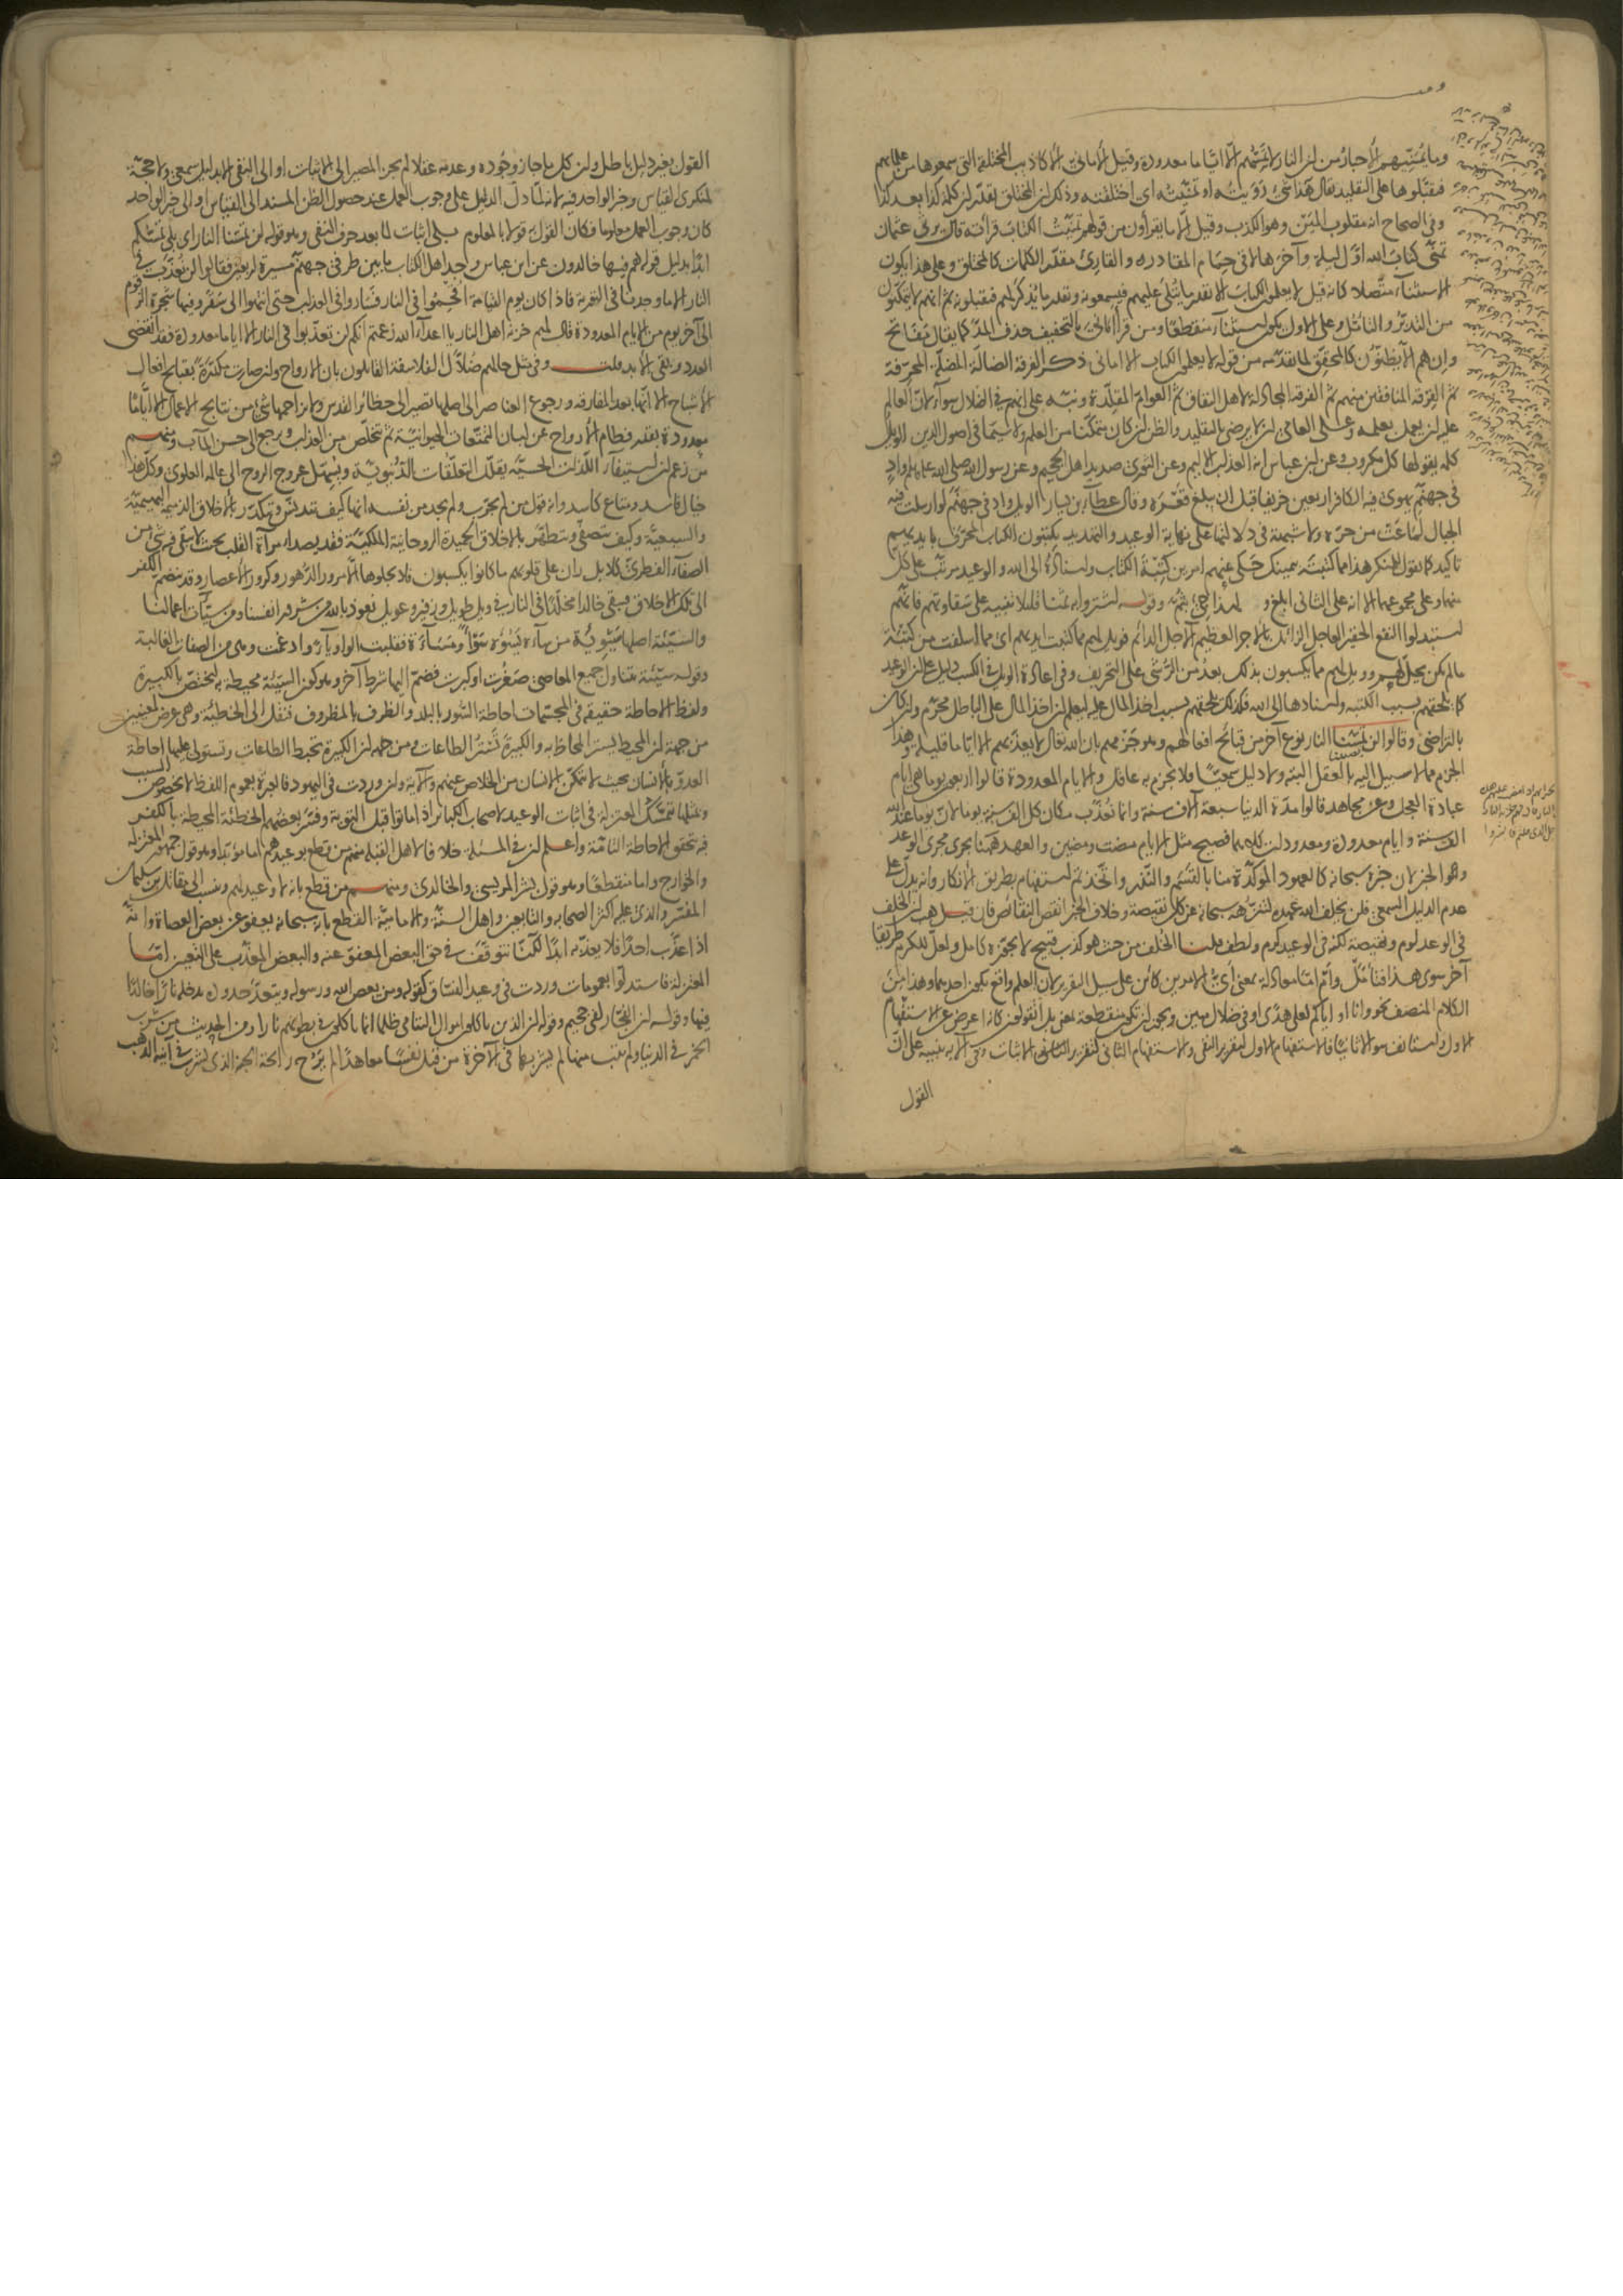 وما يمنيهم الأحبار من أن النار لا تمسهم إلا أياما معدودة وقيل الأماني الأكاذيب المختلقة التي سمعوها من علمائهم
فقبلوها على التقليد قال هذا شيء رويته أو تمنيته أي اختلقته وذكر أن المختلق يقدر أن كلمة كذا بعد كذا
وفي الصحاح أنه مقلوب المين وهو الكذب وقيل إلا ما يقرأون من قولهم تمنيت الكتاب قرأته قال يرثي عثمان
تمنى كتاب الله أول ليله وآخرها لاقى حمام المقادر والقارئ مقدر الكلمات كالمختلق وعلى هذا يكون
الاستثناء متصلا كأنه قيل لا يعلمون الكتاب إلا بقدر ما يتلى عليهم فيسمعونه وبقدر ما يذكر لهم فيقبلونه ثم إنهم لا يتمكنون
من التدبر والتأمل وعلى الأول يكون استثناء منقطعا ومن قرأ أماني بالتخفيف حذف المد كما يقال مفاتح
وإن هم إلا يظنون كالمحقق لما تقدمه من قوله لا يعلمون الكتاب إلا أماني ذكر الفرقة الضالة المضلة المحرفة
ثم الفرقة المنافقين منهم ثم الفرقة المجادلة لأهل النفاق ثم العوام المقلدة ونبه على أنهم في الضلال سواء لأن العالم
عليه أن يعمل بعلمه وعلى العامي أن لا يرضى بالتقليد والظن إن كان متمكنا من العلم ولا سيما في أصول الدين الويل
كلمة يقولها كل مكروب وعن ابن عباس أنه العذاب الأليم وعن الثوري صديد أهل الجحيم وعن رسول الله صلى الله عليه وسلم واد
في جهنم يهوي فيه الكافر أربعين خريفا قبل أن يبلغ قعره وقال عطاء بن يسار الويل واد في جهنم لو أرسلت فيه
الجبال لماعت من حره ولا شبهة في دلالتها على نهاية الوعيد والتهديد يكتبون الكتاب المحرف بأيديهم
تأكيد كما تقول لمنكر هذا ما كتبته بيمينك حكى عنهم أمرين كتبة الكتاب وإسناده إلى الله والوعيد مرتب على كل
منهما وعلى مجموعهما إلا أنه على الثاني أبلغ ولهذا جيء بثم وقوله ليشتروا به ثمنا قليلا تنبيه على شقاوتهم فإنهم
استبدلوا النفع الحقير العاجل الزائل بالأجر العظيم الآجل الدائم فويل لهم مما كتبت أيديهم أي مما أسلفت من كتبة
ما لم يكن يحل لهم وويل لهم مما يكسبون بذلك بعد من الرشى على التحريف وفي إعادة الويل في الكسب دليل على أن الوعيد
كما يلحقهم بسبب الكتبة وإسنادها إلى الله فكذلك يلحقهم بسبب أخذ المال عليه ليعلم أن أخذ المال على الباطل محرم وإن كان
بالتراضي وقالوا لن تمسنا النار نوع آخر من قبائح أفعالهم وهو جزمهم بأن الله تعالى لا يعذبهم إلا أياما قليلة وهذا
الجزم مما لا سبيل إليه بالعقل البتة ولا دليل سمعيا فلا يجزم به عاقل والأيام المعدودة قالوا أربعون يوما هي أيام
عبادة العجل وعن مجاهد قالوا مدة الدنيا سبعة آلاف سنة وإنما نعذب مكان كل ألف سنة يوما لأن يوما عند الله
ألف سنة وأيام معدودة ومعدودات كلاهما فصيح مثل الأيام مضت ومضين والعهد ههنا يجري مجرى الوعد
وهو الخبر لأن خبره سبحانه كالعهود المؤكدة منا بالقسم والنذر وأتخذتم استفهام بطريق الإنكار وأنه يدل على
عدم الدليل السمعي فلن يخلف الله عهده لتنزهه سبحانه عن كل نقيصة وخلاف الخبر أنقص النقائص فإن قيل هب أن الخلف
في الوعد لوم ونقيصة لكنه في الوعيد كرم ولطف قلنا الخلف من حيث هو كذب قبيح لا يجوزه كامل ولعل للكريم طريقا
آخر سوى هذا فتأمل وأم إما معادلة بمعنى أي الأمرين كائن على سبيل التقرير لأن العلم واقع بكون أحدهما وهذا من
الكلام المنصف نحو وإنا أو إياكم لعلى هدى أو في ضلال مبين ويجوز أن تكون منقطعة بمعنى بل أتقولون كأنه أعرض عن الاستفهام
الأول واستأنف سؤالا ثانيا فالاستفهام الأول لتقرير النفي والاستفهام الثاني لتقرير الإثبات وفي الآية تنبيه على أن
القول
القول بغير دليل باطل وأن كل ما جاز وجوده وعدمه عقلا لم يجز المصير إلى الإثبات أو إلى النفي إلا بدليل سمعي ولا حجة
لمنكري القياس وخبر الواحد فيه لأنه لما دل الدليل على وجوب العمل عند حصول الظن المسند إلى القياس أو إلى خبر الواحد
كان وجوب العمل معلوما فكان القول به قولا بالمعلوم بلى إثبات لما بعد حرف النفي وهو قوله لن تمسنا النار أي بلى تمسكم
أبدا بدليل قوله هم فيها خالدون عن ابن عباس وجد أهل الكتاب ما بين طرفي جهنم مسيرة أربعين فقالوا لن نعذب في
النار إلا ما وجدنا في التورية فإذا كان يوم القيامة أقحموا في النار فساروا في العذاب حتى انتهوا إلى سقر وفيها شجرة الزقوم
إلى آخر يوم من الأيام المعدودة قال لهم خزنة أهل النار يا أعداء الله زعمتم أنكم لن تعذبوا في النار إلا أياما معدودة فقد انقضى
العدد وبقي الأبد قلت وفي مثل حالهم ضلال الفلاسفة القائلون بأن الأرواح وإن صارت مكدرة بقبائح أفعال
الأشباح إلا أنها بعد المفارقة ورجوع العناصر إلى أصلها تصير إلى حظائر القدس ولا يزاحمها شيء من نتايج الأعمال إلا أياما
معدودة بقدر فطام الأرواح عن لبان التمتعات الحيوانية ثم تتخلص من العذاب وترجع إلى حسن المآب ومنهم
من زعم أن استيفاء اللذات الحسية يقلل التعلقات الدنيوية ويسهل عروج الروح إلى عالمه العلوي وكل هذا
خيال فاسد ومتاع كاسد وأنه قول من لم يجرب ولم يجد من نفسه أنها كيف تتدنس وتتكدر بالأخلاق الذميمة البهيمية
والسبعية وكيف تتصفى وتتطهر بالأخلاق الحميدة الروحانية الملكية فقد يصدأ مرآة القلب بحيث لا يبقى فيه شيء من
الصفاء الفطري كلا بل ران على قلوبهم ما كانوا يكسبون فلا يجلوها إلا مرور الدهور وكرور الأعصار وقد ينضم الكفر
إلى تلك الأخلاق فيبقى خالدا مخلدا في النار في ويل طويل وزفير وعويل نعوذ بالله من شرور أنفسنا ومن سيئات أعمالنا
والسيئة أصلها سيوئة من ساءه يسوءه سوأ ومساءة فقلبت الواو ياء وأدغمت وهي من الصفات الغالبة
وقوله سيئة يتناول جميع المعاصي صغرت أو كبرت فضم إليها شرط آخر وهو كون السيئة محيطة به ليختص بالكبيرة
ولفظ الإحاطة حقيقة في المجسمات إحاطة السور بالبلد والظرف بالمظروف فنقل إلى الخطيئة وهي عرض لمعنيين
من جهة أن المحيط يستر المحاط به والكبيرة تستر الطاعات ومن جهة أن الكبيرة تحبط الطاعات وتستولي عليها إحاطة
العدو بالإنسان بحيث لا يتمكن الإنسان من الخلاص عنهم والآية وإن وردت في اليهود فالعبرة بعموم اللفظ لا بخصوص السبب
وبمثلها تمسك المعتزلة في إثبات الوعيد لأصحاب الكبائر إذا ماتوا قبل التوبة وفسر بعضهم الخطيئة المحيطة بالكفر
فيه تحقق الإحاطة التامة واعلم أن في المسئلة خلافا لأهل القبلة فمنهم من قطع بوعيدهم إما مؤبدا وهو قول جمهور المعتزلة
والخوارج وإما منقطعا وهو قول بشر المريسي والخالدي ومنهم من قطع بأنه لا وعيد لهم ونسب إلى مقاتل بن سليمان
المفسر والذي عليه أكثر الصحابة والتابعين وأهل السنة والإمامية القطع بأنه سبحانه يعفو عن بعض العصاة وأنه
إذا عذب أحدا فلا يعذبه أبدا لكنا نتوقف في حق البعض المعفو عنه والبعض المعذب على التعيين أما
المعتزلة فاستدلوا بعمومات وردت في وعيد الفساق كقوله ومن يعص الله ورسوله ويتعد حدوده يدخله نارا خالدا
فيها وقوله إن الفجار لفي جحيم وقوله إن الذين يأكلون أموال اليتامى ظلما إنما يأكلون في بطونهم نارا ومن الحديث من شرب
الخمر في الدنيا ولم يتب منها لم يشربها في الآخرة من قتل نفسا معاهدا لم يرح رائحة الجنة الذي يشرب في آنية الذهب